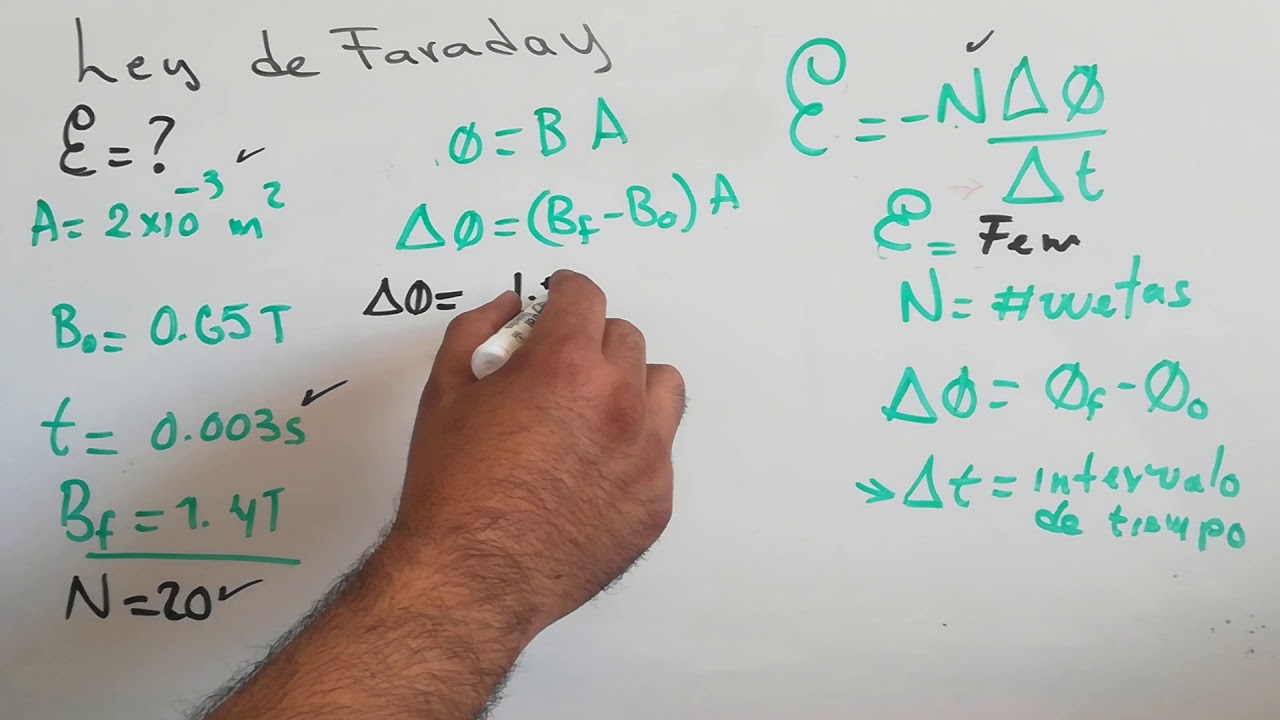 Ley de Faraday
ℰ = ?
A = 2×10⁻³ m²
B₀ = 0.65T
t = 0.003s
B_f = 1.4T
N = 20
Ø = B A
ΔØ = (B_f - B₀) A
ΔØ =
ℰ = -N ΔØ / Δt
ℰ = Fem
N = #vueltas
ΔØ = Ø_f - Ø₀
Δt = intervalo
de tiempo